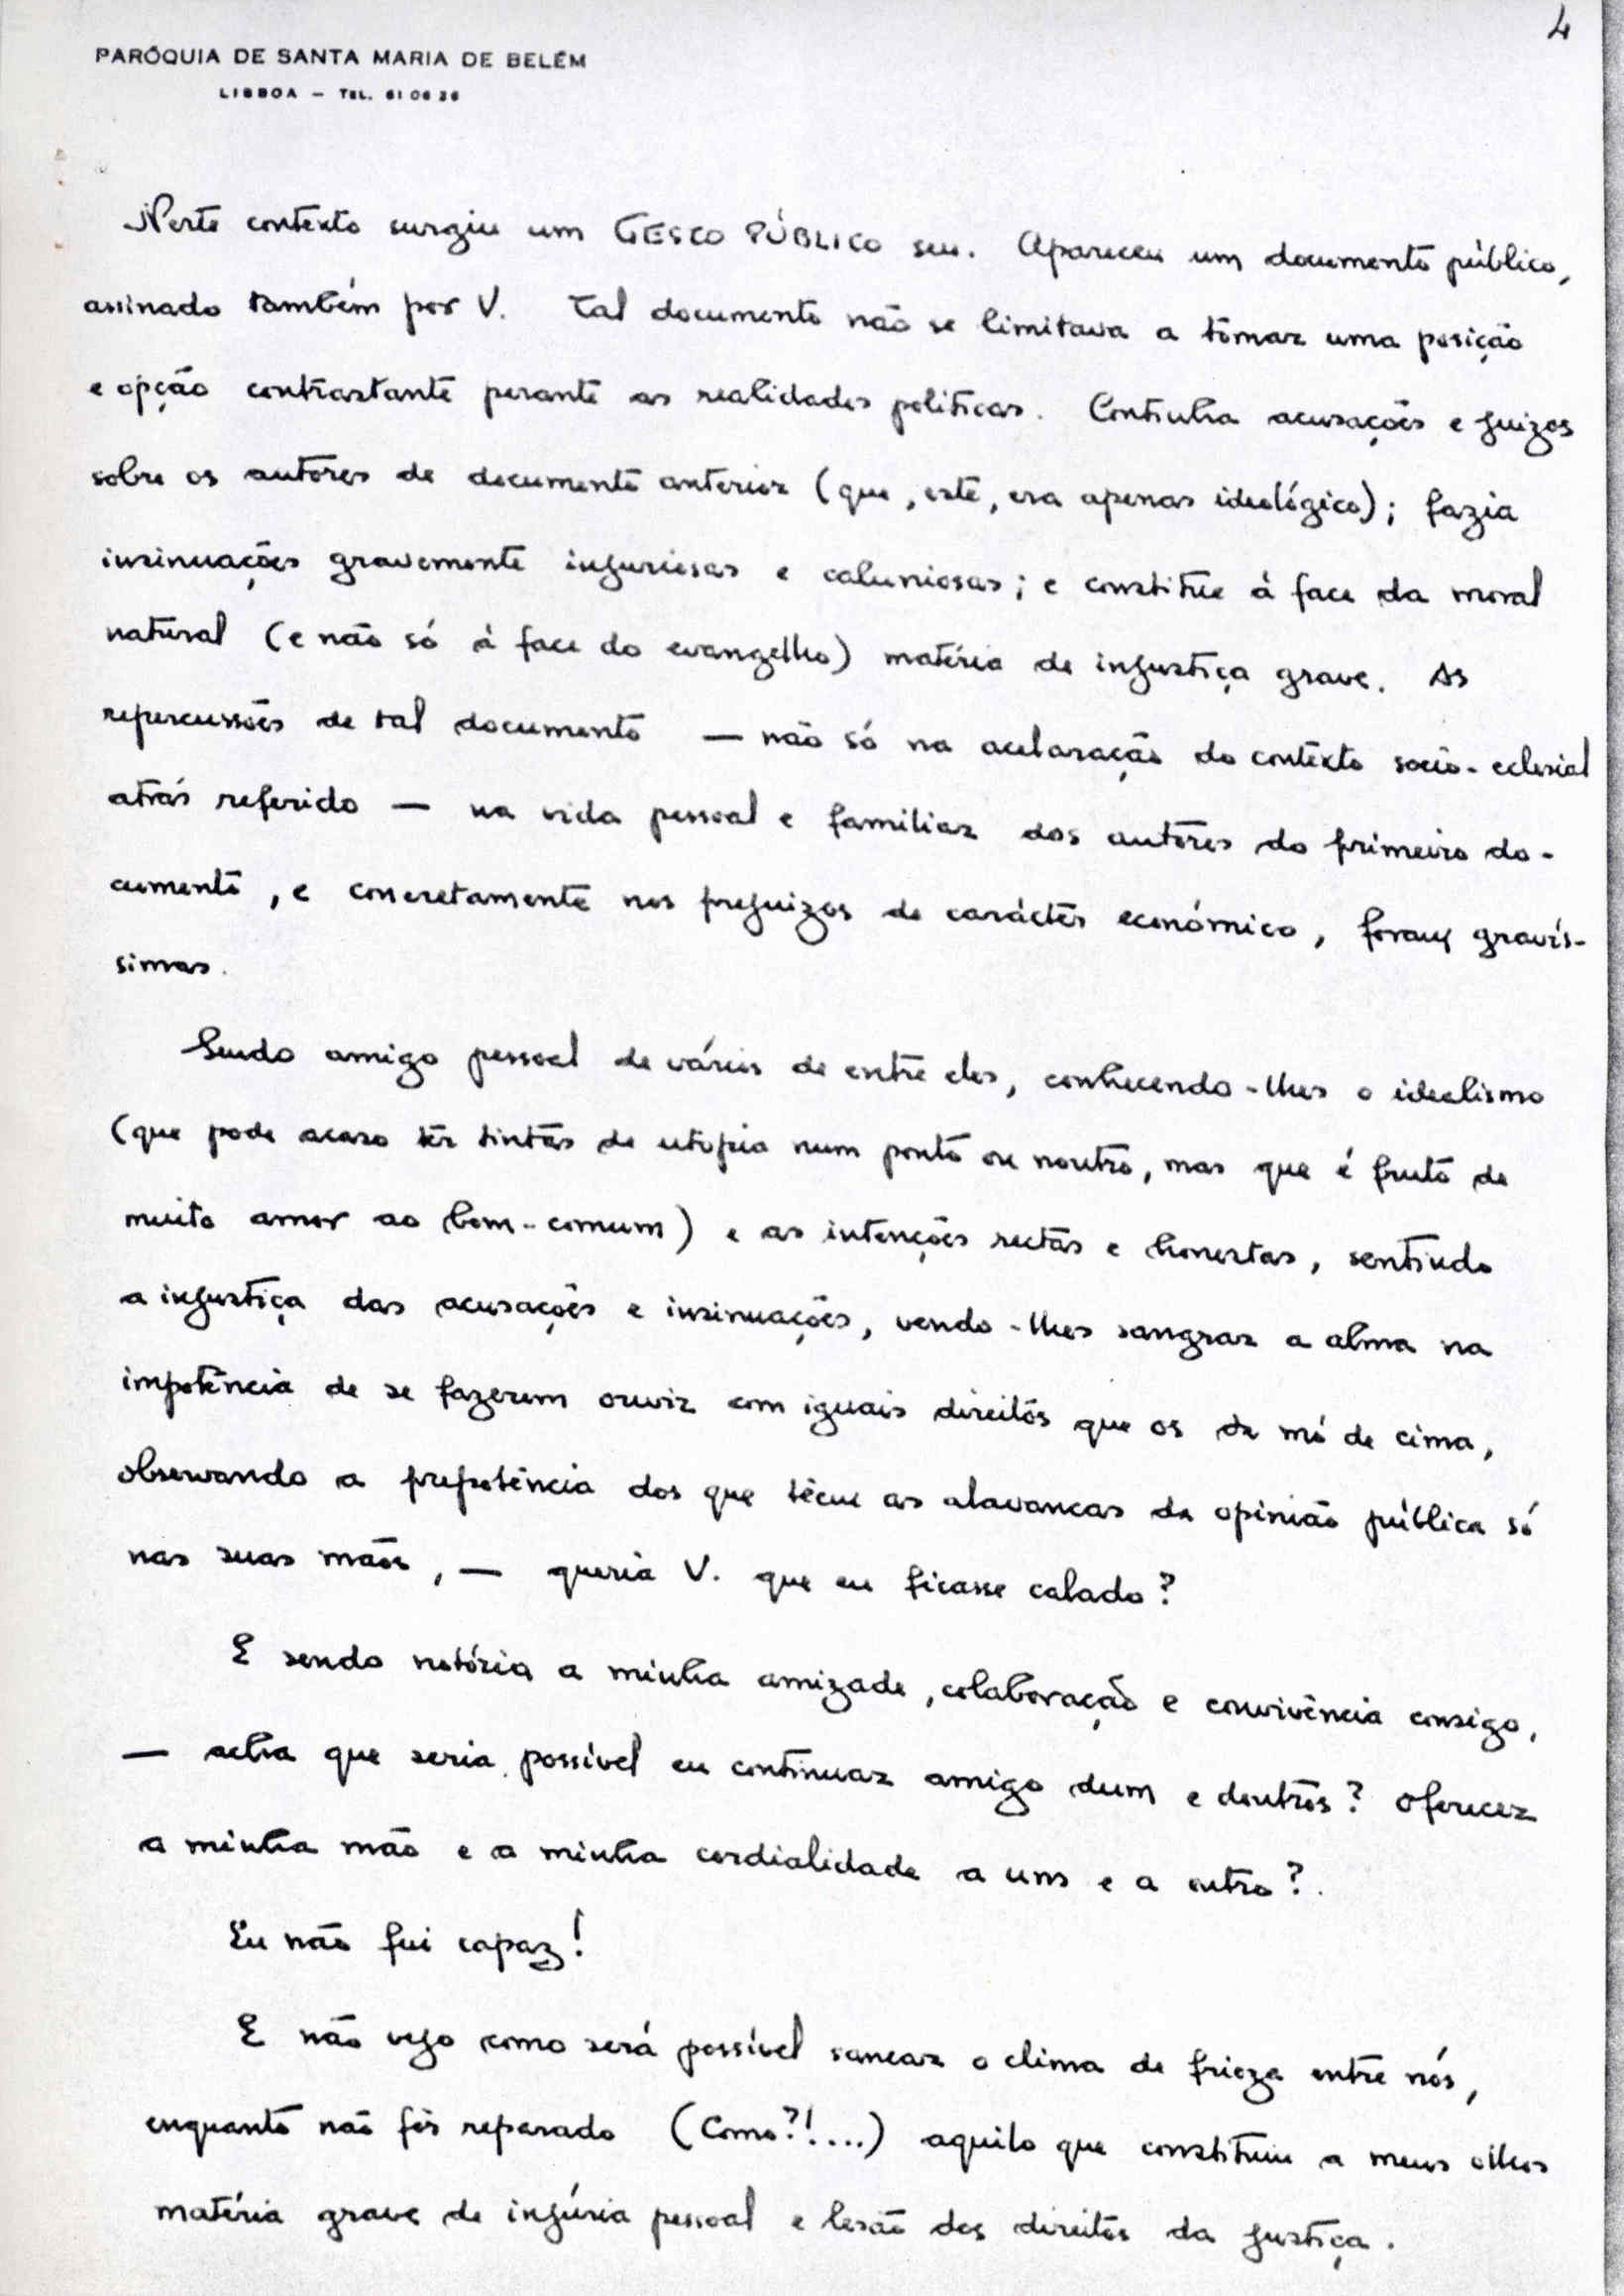 4
PARÓQUIA DE SANTA MARIA DE BELÉM
LISBOA — TEL. 61 06 26
Neste contexto surgiu um GESTO PÚBLICO seu. Apareceu um documento público,
assinado também por V. Tal documento não se limitava a tomar uma posição
e opção contrastante perante as realidades políticas. Continha acusações e juizos
sobre os autores de documento anterior (que, este, era apenas ideológico); fazia
insinuações gravemente injuriosas e caluniosas; e constitue à face da moral
natural (e não só à face do evangelho) matéria de injustiça grave. As
repercussões de tal documento — não só na aclaração do contexto socio-eclesial
atrás referido — na vida pessoal e familiar dos autores do primeiro do-
cumento, e concretamente nos prejuizos de carácter económico, foram gravís-
simas.
Sendo amigo pessoal de vários de entre eles, conhecendo-lhes o idealismo
(que pode acaso ter tintas de utopia num ponto ou noutro, mas que é fruto de
muito amor ao bem-comum) e as intenções rectas e honestas, sentindo
a injustiça das acusações e insinuações, vendo-lhes sangrar a alma na
impotência de se fazerem ouvir com iguais direitos que os da mó de cima,
observando a prepotência dos que têem as alavancas da opinião pública só
nas suas mãos, — queria V. que eu ficasse calado?
E sendo notória a minha amizade, colaboração e convivência consigo,
— acha que seria possível eu continuar amigo dum e doutros? Oferecer
a minha mão e a minha cordialidade a uns e a outro?
Eu não fui capaz!
E não vejo como será possível sanear o clima de frieza entre nós,
enquanto não fôr reparado (Como?!....) aquilo que constituiu a meus olhos
matéria grave de injúria pessoal e lesão dos direitos da justiça.